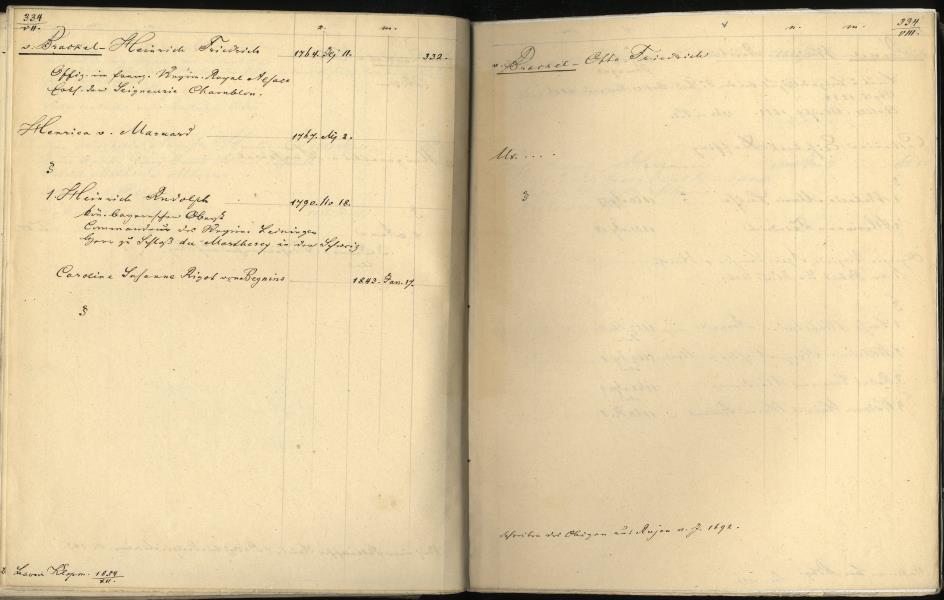 334
VII.
n. m.
v. Brackel - Heinrich Friedrich 1764. 11. 332.
Offiz. im franz. Regim. Royal Alsace
der Seigneurie Chamblon.
Henrica v. Marnard 1767. 2.
1. Heinrich Rudolph 1790. Nov 18.
kön. bayerischer Oberst
Commandeur des Regim. Leiningen
Herr zu Schloß du Martheray in der Schweiz
Caroline Susanne Rigot von Begnins 1843. Jan. 17.
1834
XII.
n. m. 334
VIII.
v. Brackel - Otto Friedrich
Ux. . . . .
Schreiben des Obigen aus Rujen v. J. 1692.